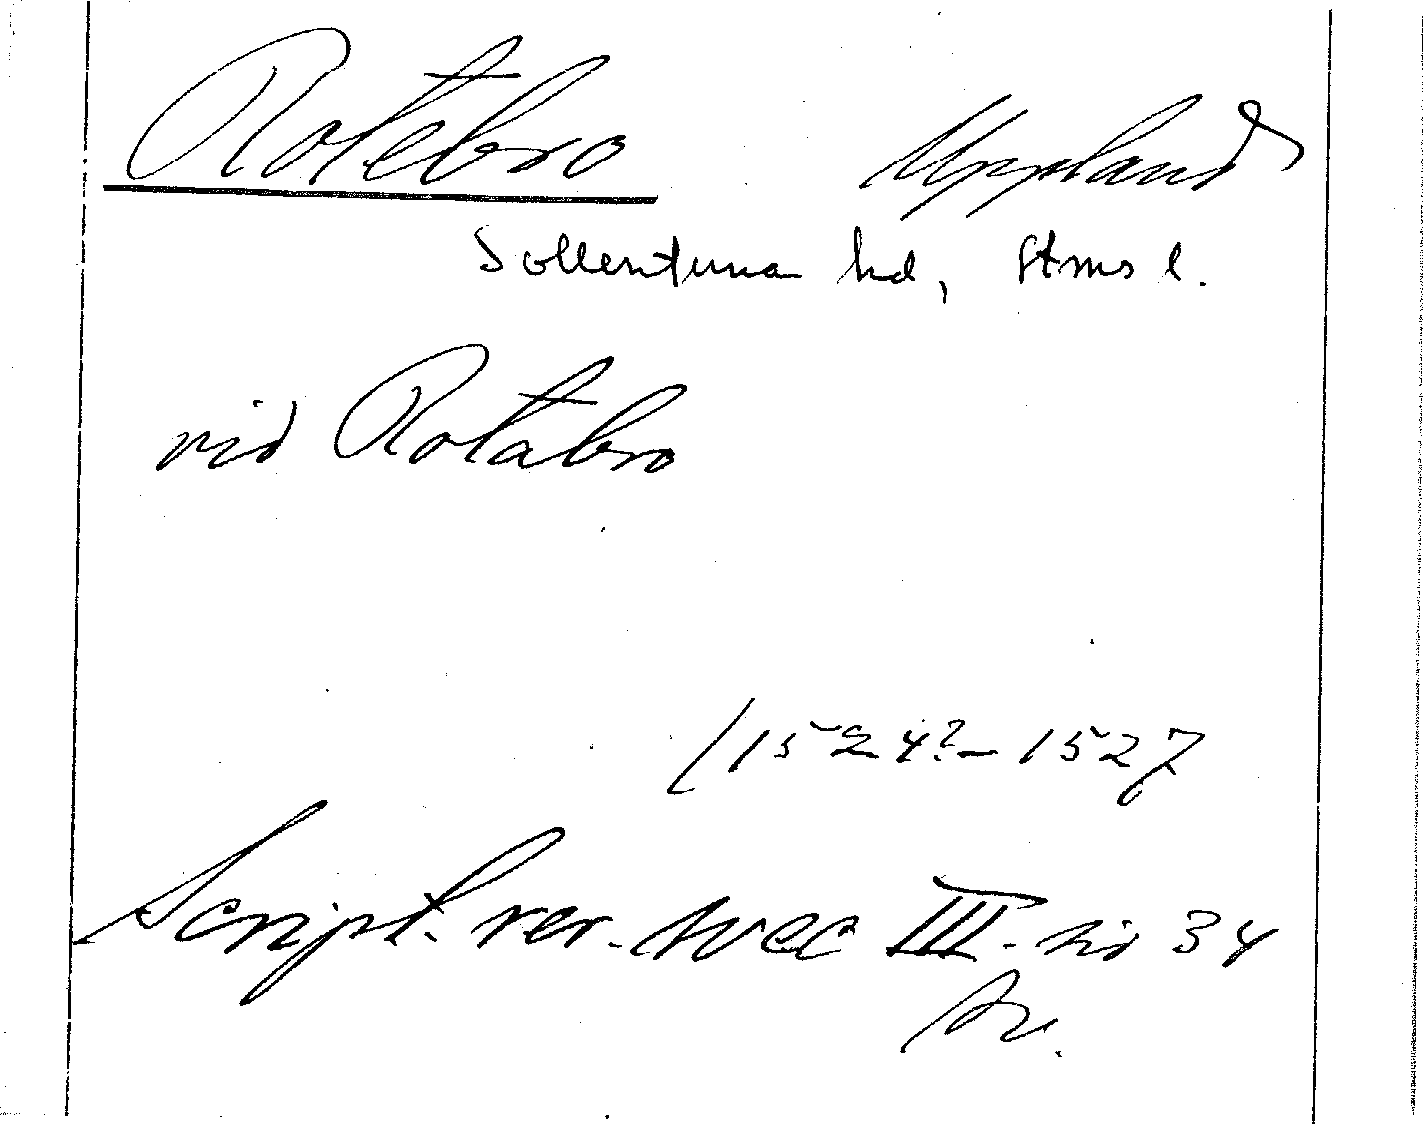 Rotebro Uppland
Sollentuna hd, Sthms l.
vid Rotabro
/1524?–1527
Script. rer. svec III. sid 34